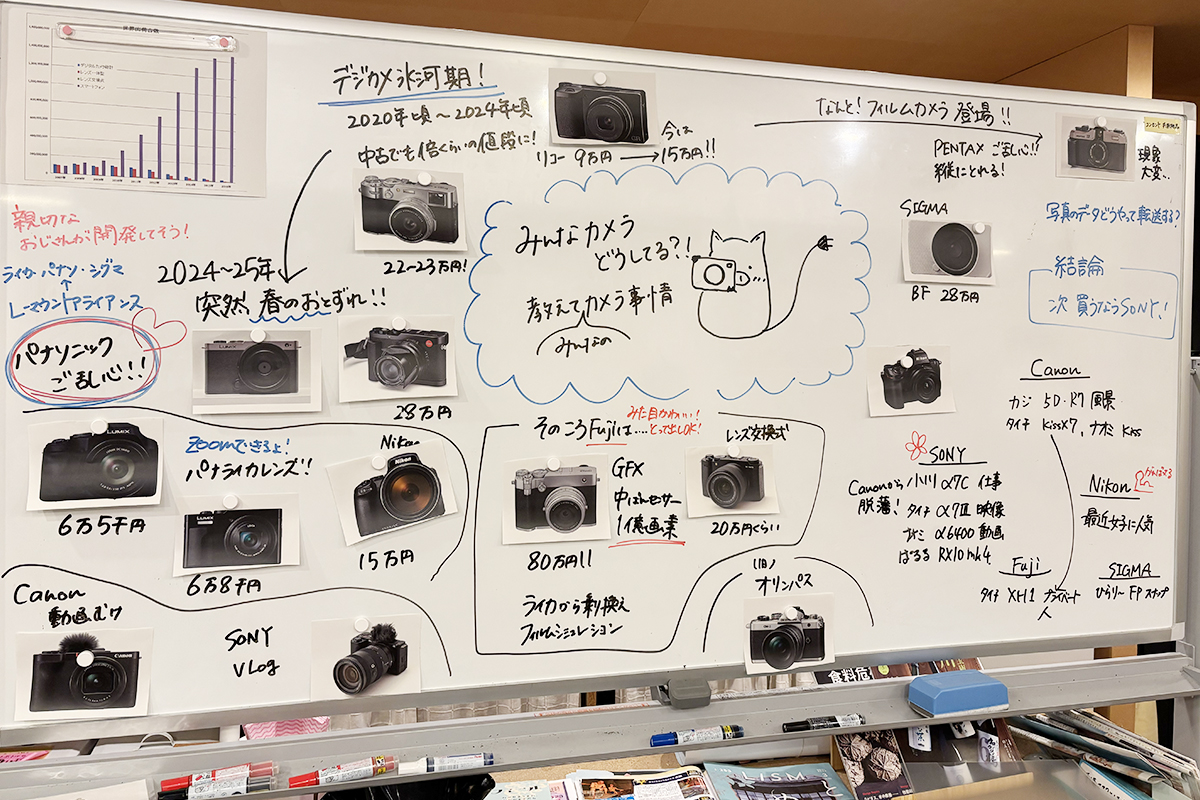 デジカメ氷河期!
2020年頃〜2024年頃
中古でも倍くらいの値段に!
リコー 9万円 → 今は 15万円!!
なんと!フィルムカメラ登場!!
PENTAX ご乱心!!
縦にとれる!
現像
大変…
写真のデータどうやって転送する?
結論
次買うならSONY!
SIGMA
BF 28万円
22〜23万円!
親切な
おじさんが開発してそう!
ライカ・パナソ・シグマ
↑
Lマウントアライアンス
パナソニック
ご乱心!!
2024〜25年
突然、春のおとずれ!!
28万円
みんなカメラ
どうしてる?!
教えてカメラ事情
みんなの
LUMIX
6万5千円
Zoomできるよ!
パナライカレンズ!!
LUMIX
6万8千円
Nikon
Nikon
15万円
そのころFujiは….
みた目かわいい!
とって出しOK!
GFX
中ばんセンサー
1億画素
80万円!!
レンズ交換式
20万円くらい
ライカから乗換え
フィルムシミュレーション
(旧)
オリンパス
Canon
動画むけ
Canon
SONY
VLog
Canon
カジ 5D・R7 風景
タイチ KissX7, ナオミ Kiss
SONY
Canonから
脱藩!
小川 α7C 仕事
タイチ α7Ⅲ 映像
α6400 動画
ぱるる RX10mk4
Nikon
がんばってる
最近女子に人気
Fuji
タイチ XH1 プライベート
SIGMA
ひらりー FP スナップ
食料危